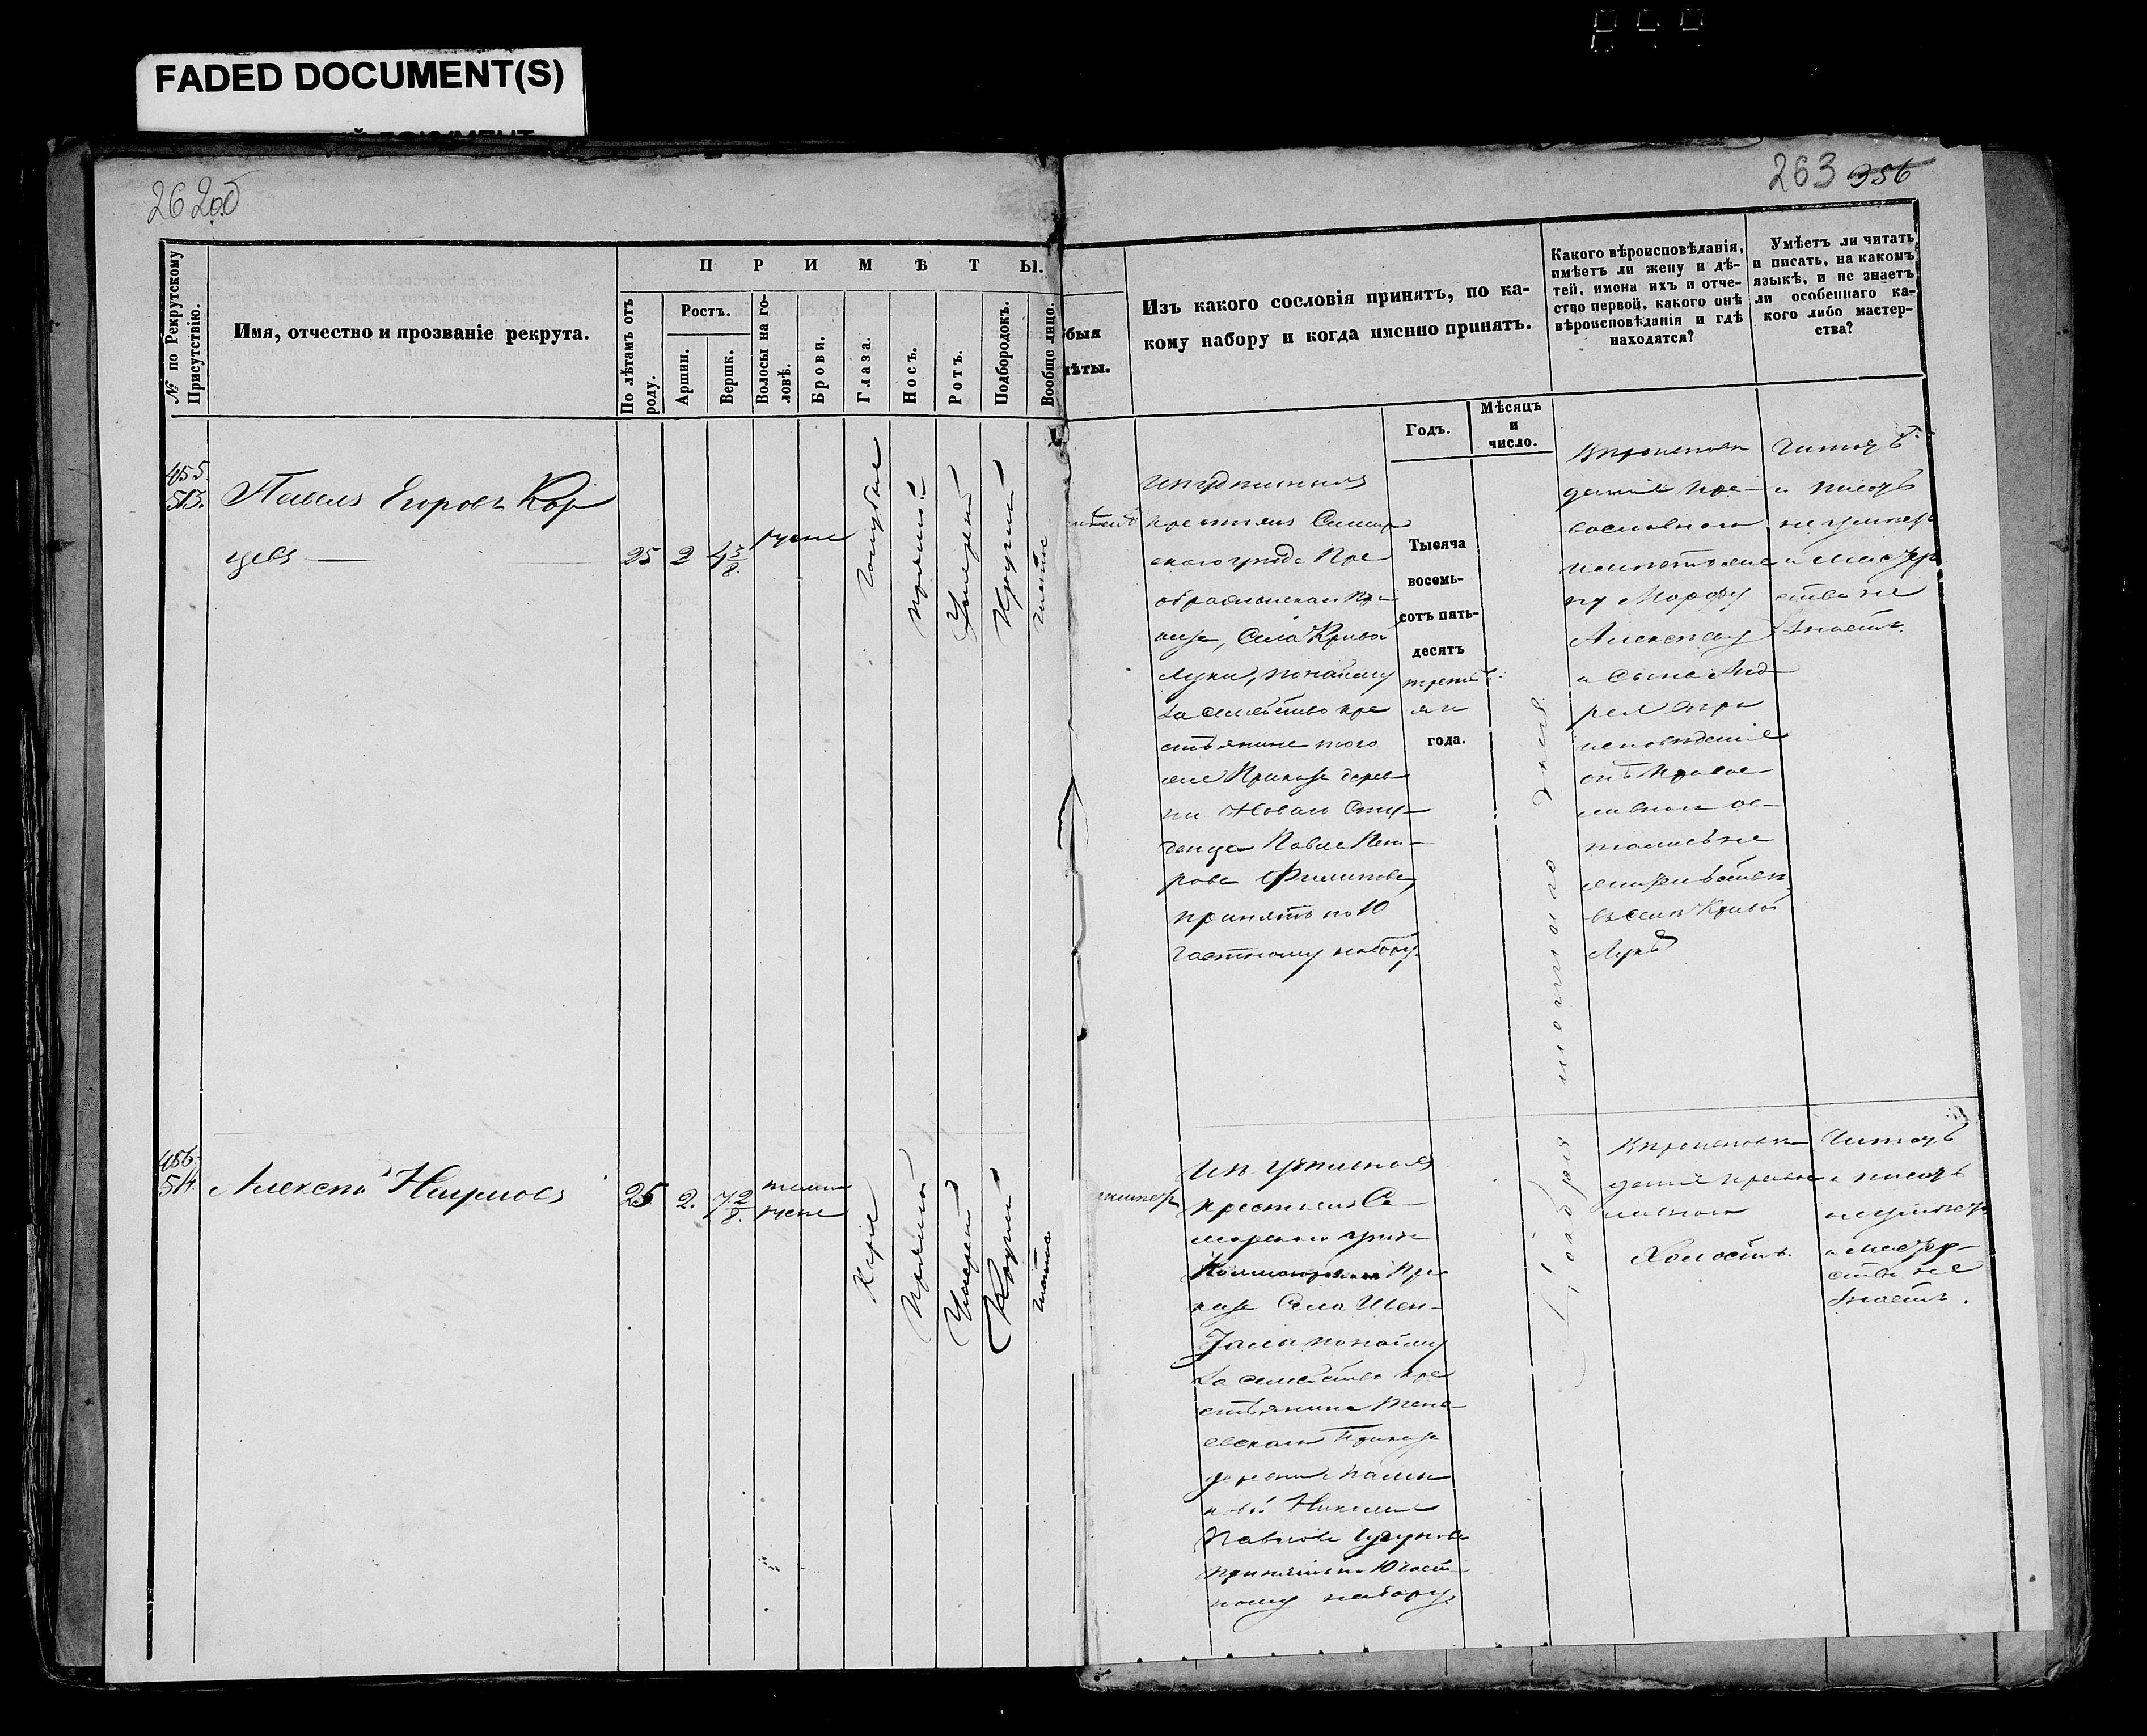 FADED DOCUMENT(S)
262 об
263 356
№ по Рекрутскому Присутствію.
Имя, отчество и прозваніе рекрута.
П Р И М Ѣ Т Ы.
По лѣтамъ отъ роду.
Ростъ.
Аршин.
Вершк.
Волосы на головѣ.
Брови.
Глаза.
Носъ.
Ротъ.
Подбородокъ.
Вообще лицо.
быя
мѣты.
Изъ какого сословія принятъ, по ка-
кому набору и когда именно принятъ.
Годъ.
Мѣсяцъ
и
число.
Какого вѣроисповѣданія,
имѣетъ ли жену и дѣ-
тей, имена ихъ и отче-
ство первой, какого онѣ
вѣроисповѣданія и гдѣ
находятся?
Умѣетъ ли читать
и писать, на какомъ
языкѣ, и не знаетъ
ли особеннаго ка-
кого либо мастер-
ства?
455.
513.
Павелъ Егоровъ Кор
цевъ
25 2 4 3/8.
русые
голубые
прямый
умѣренный
круглый
чистое
Изъ удѣльныхъ
крестьянъ Самар
скаго уѣзда Пре
ображенскаго При
каза, Села Кривой
Луки, по найму
за семейство кре
стьянина того
же Приказа дерев
ни Новаго
Павла Пет-
рова Филипова,
принятъ по 10
частному набору.
Тысяча
восемь-
сотъ пять-
десятъ
третья
го
года.
Ноября шестаго дня
Вѣроисповѣ
данія пра-
вославнаго
имѣетъ же
ну Марфу
Алексѣеву
и сына Анд
рея вѣро
исповѣданія
онѣ правос-
лавнаго ос-
тались на
жительствѣ
въ селѣ Кривой
Лукѣ
Читать
и писать
не умѣетъ
и мастер
ства не
знаетъ.
456.
514.
Алексѣй Наумовъ
25 2. 7 2/8.
темно
русые
Каріе
прямый
умѣренный
круглый
чистое
Изъ удѣльныхъ
крестьянъ Са-
марскаго уѣзда
При
каза Села Шен-
талы по найму
за семейство кре
стьянина
Приказа
деревни
Николая
Павлова
принятъ по 10 част
ному набору.
Вѣроисповѣ
данія правос
лавнаго
Холостъ.
Читать
и писать
не умѣетъ
и мастер-
ства не
знаетъ.